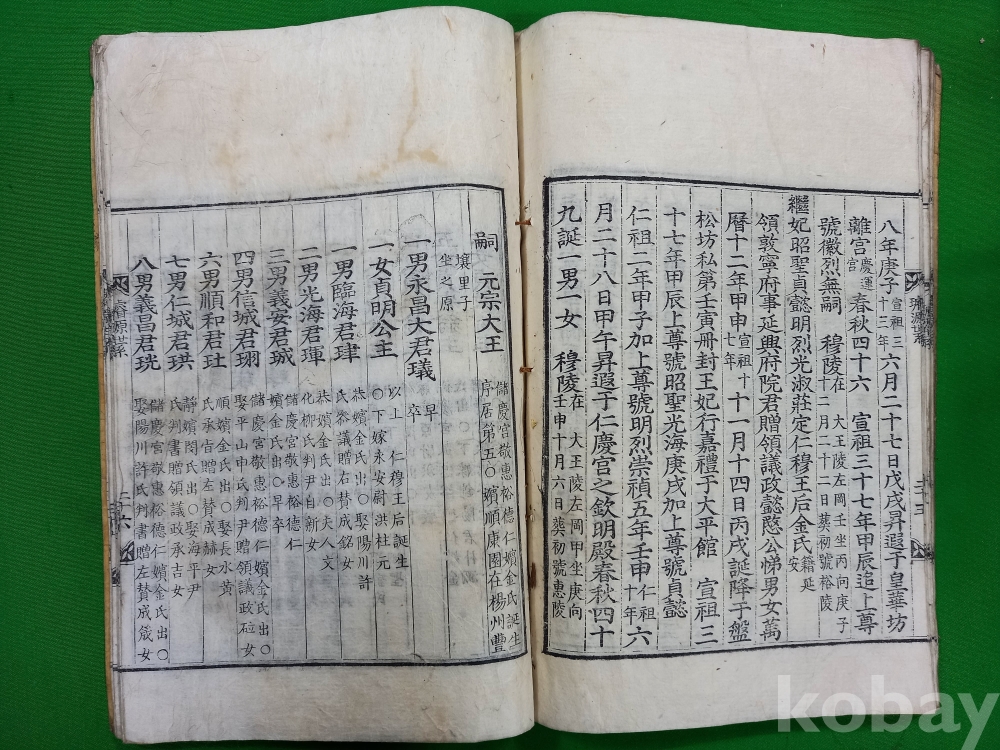 八年庚子宣祖三十三年六月二十七日戊戌昇遐于皇華坊
離宮慶運宮春秋四十六 宣祖三十七年甲辰追上尊
號徽烈無嗣 穆陵在 大王陵左岡壬坐丙向庚子十二月二十二日葬初號裕陵
繼妃昭聖貞懿明烈光淑莊定仁穆王后金氏籍延安
領敦寧府事延興府院君贈領議政懿愍公悌男女萬
曆十二年甲申宣祖十七年十一月十四日丙戌誕降于盤
松坊私第壬寅冊封王妃行嘉禮于大平館 宣祖三
十七年甲辰上尊號昭聖光海庚戌加上尊號貞懿
仁祖二年甲子加上尊號明烈崇禎五年壬申仁祖十年六
月二十八日甲午昇遐于仁慶宮之欽明殿春秋四十
九誕一男一女 穆陵在 大王陵左岡甲坐庚向壬申十月六日葬初號惠陵
嗣 元宗大王 儲慶宮敬惠裕德仁嬪金氏誕生序居第五○嬪順康園在楊州豐
壤里子坐之原
一男永昌大君㼁 早卒
一女貞明公主 以上 仁穆王后誕生○下嫁永安尉洪柱元
一男臨海君珒 恭嬪金氏出○娶陽川許氏裕議政贈右賛成銘女
二男光海君琿 恭嬪金氏出○夫人文化柳氏判尹自新女
三男義安君珹 儲慶宮敬惠裕德仁嬪金氏出○早卒
四男信城君珝 儲慶宮敬惠裕德仁嬪金氏出○娶平山申氏判尹贈領議政砬女
六男順和君𤣰 順嬪金氏出○娶長水黃氏承旨贈左賛成赫女
七男仁城君珙 靜嬪閔氏出○娶海平尹氏判書贈領議政承吉女
八男義昌君珖 儲慶宮敬惠裕德仁嬪金氏出○娶陽川許氏判書贈左賛成筬女
璿源世系
二十六
kobay